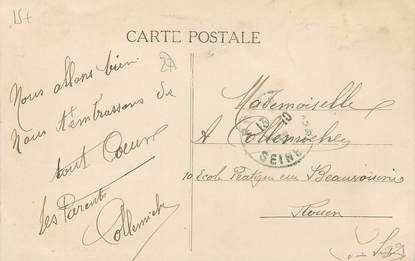 15+
CARTE POSTALE
Nous allons bien
Nous t'embrassons de
tout Coeur
Les Parents
Collemiche
Mademoiselle
A Collemiche
13 10
SEINE
10 Ecole Pratique rue Beauvoisine
Rouen